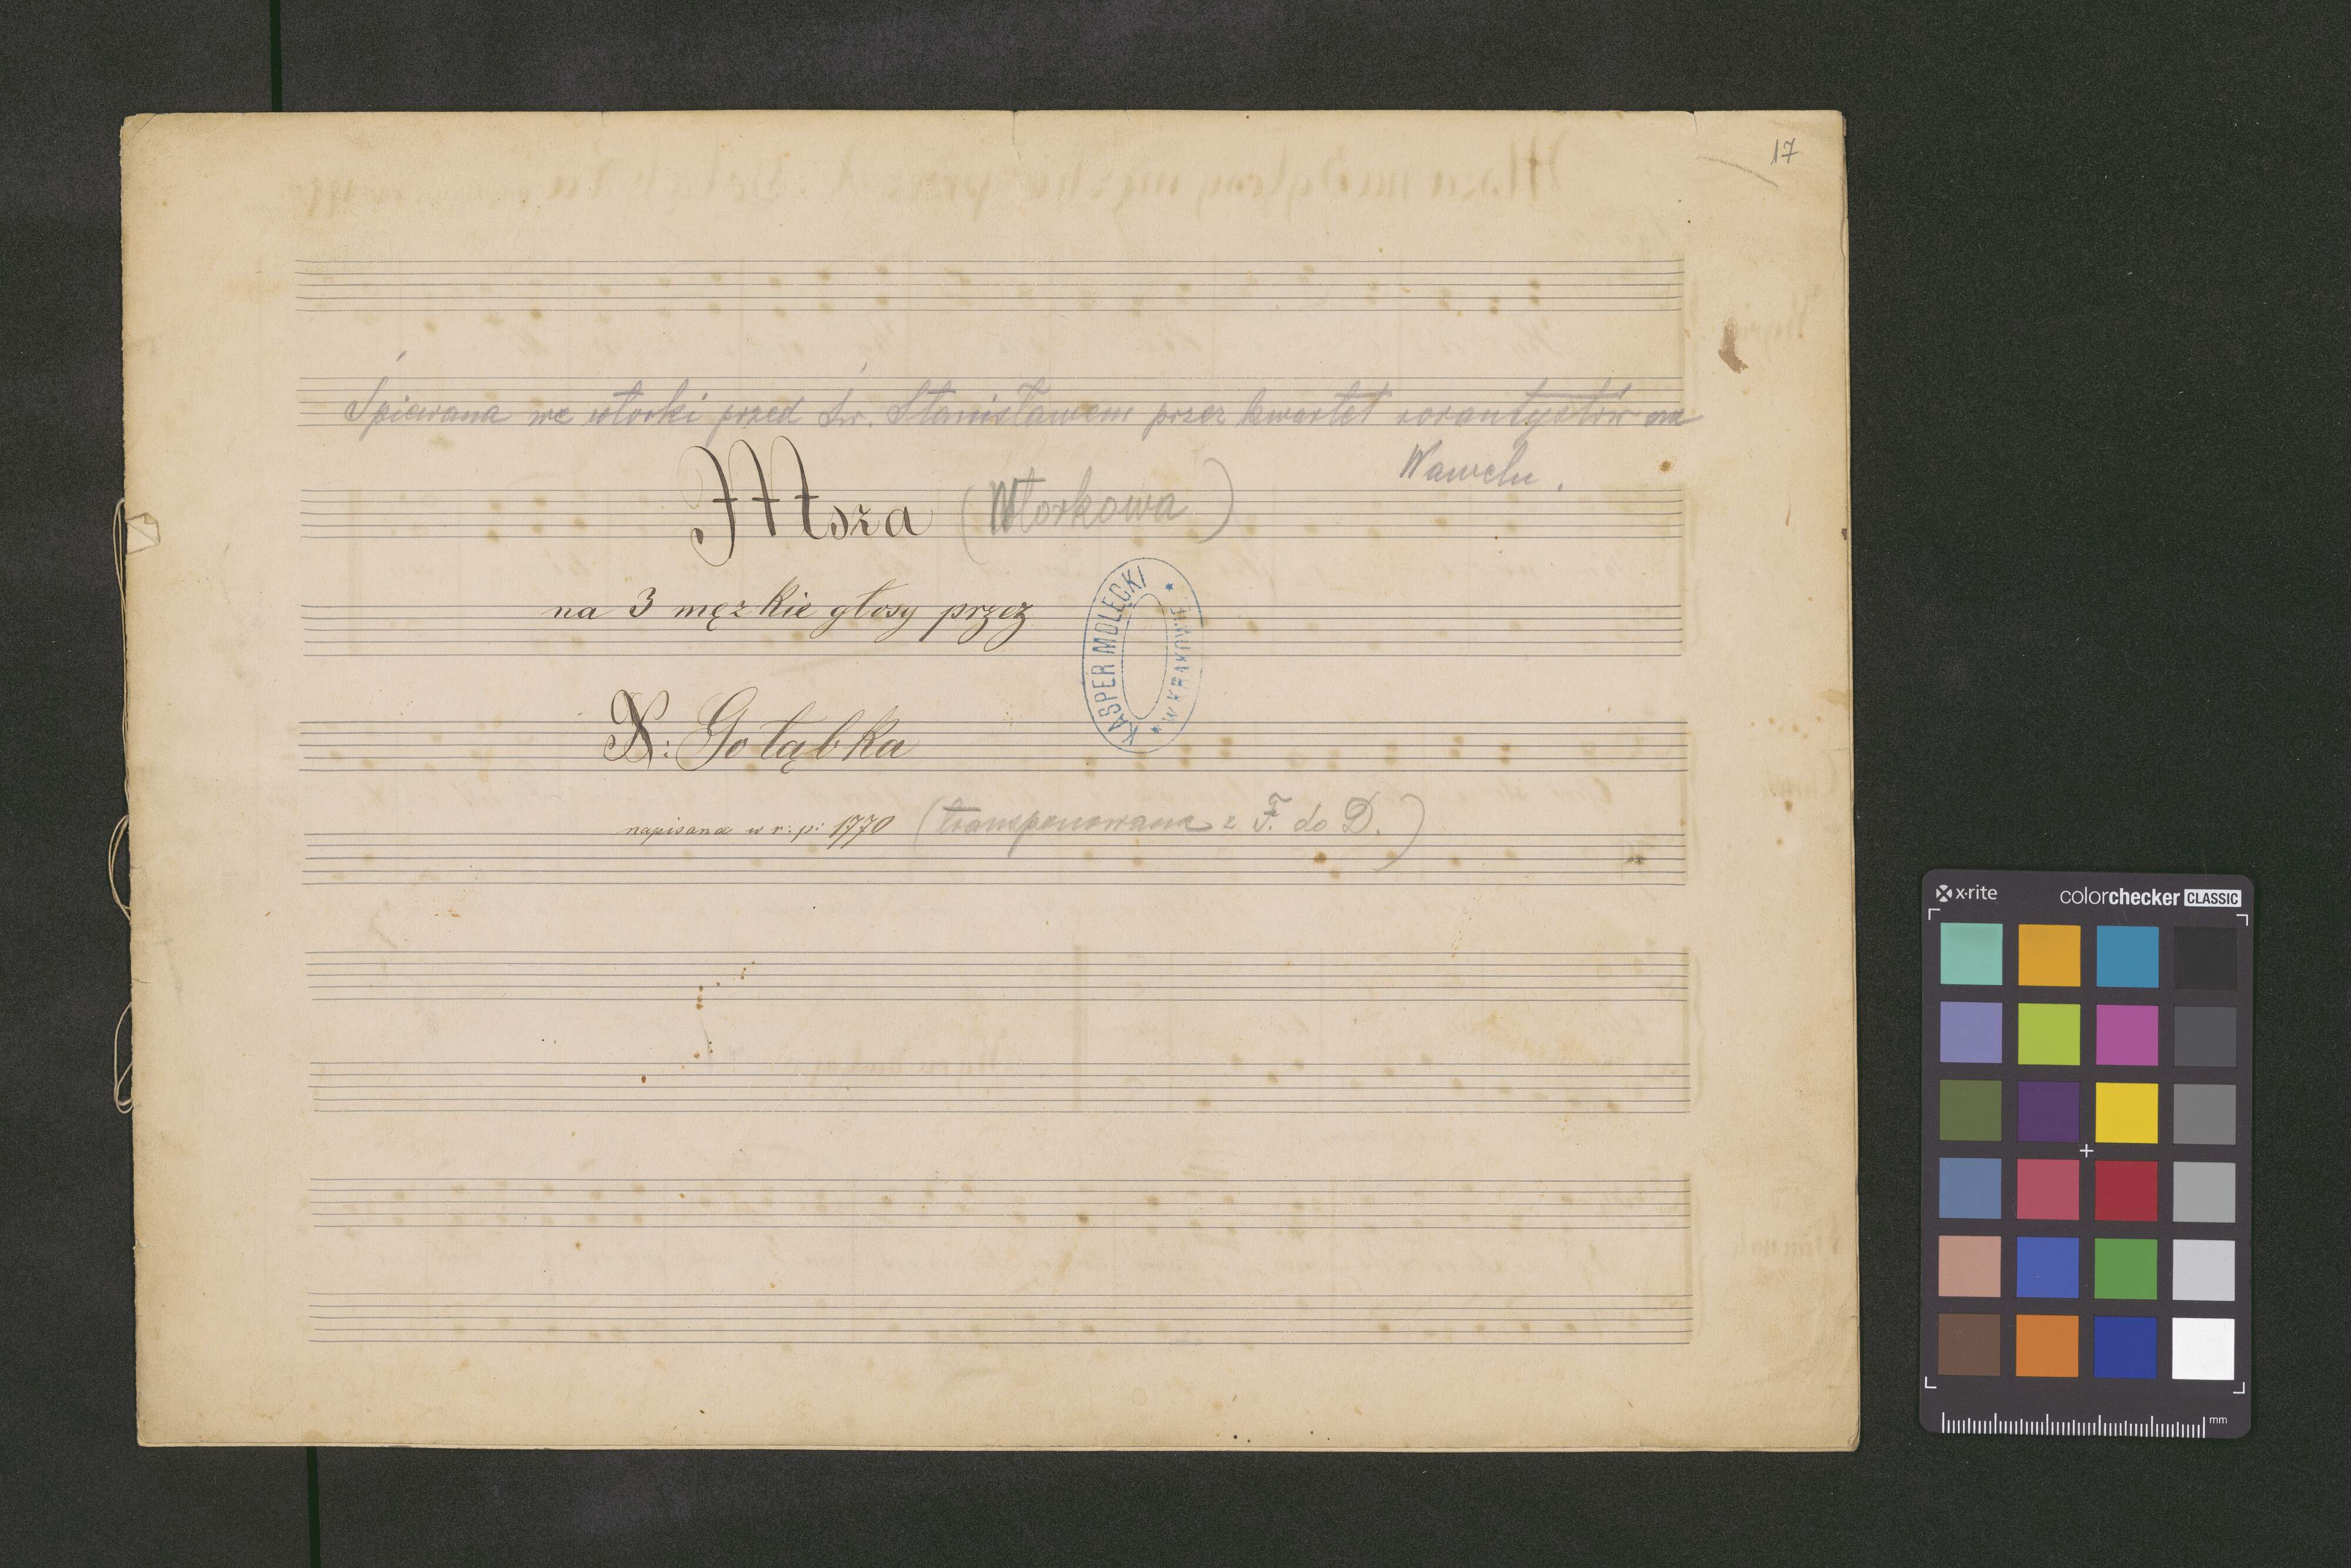 17
Śpiewana we wtorki przed św. Stanisławem przez kwartet rorantystów na
Wawelu.
Msza (Wtorkowa)
na 3 męzkie głosy przez
KASPER MOLĘCKI
* W KRAKOWIE *
X: Gołąbka
napisana w r: p: 1770 (transponowana z F. do D.)
x·rite
colorchecker CLASSIC
mm